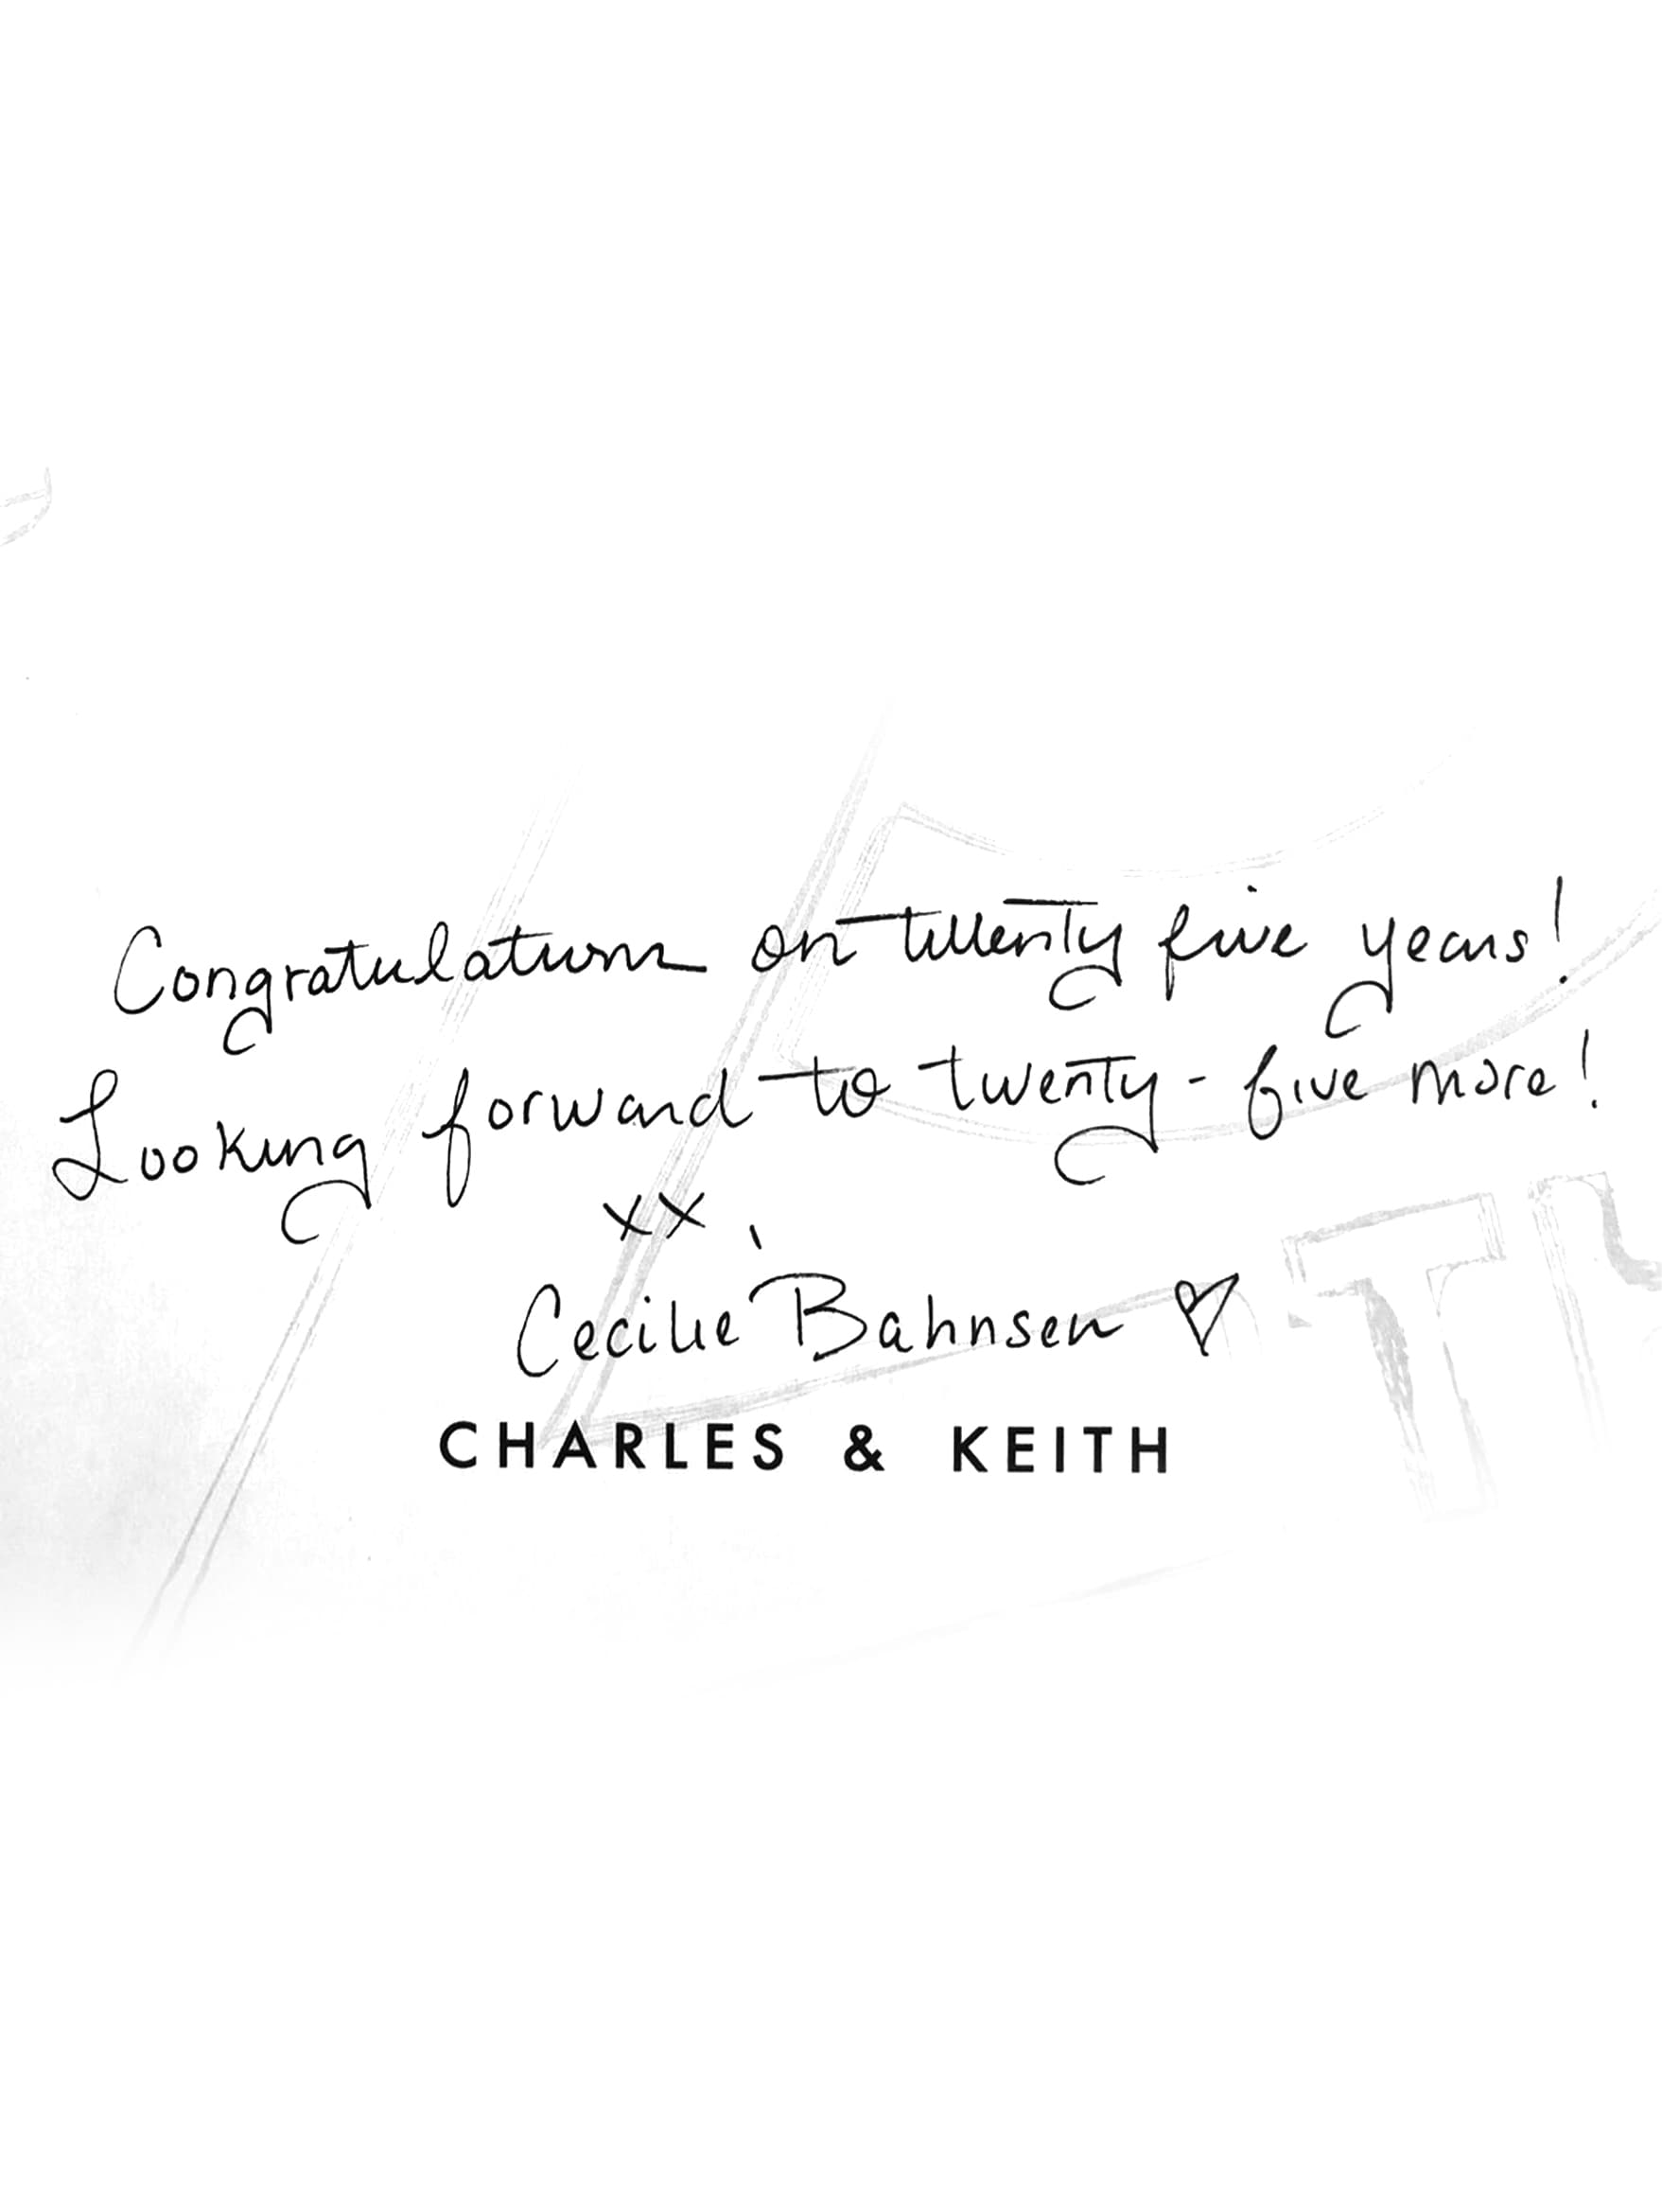 Congratulations on twenty five years!
Looking forward to twenty-five more!
xx
Cecilie Bahnsen ♡
CHARLES & KEITH